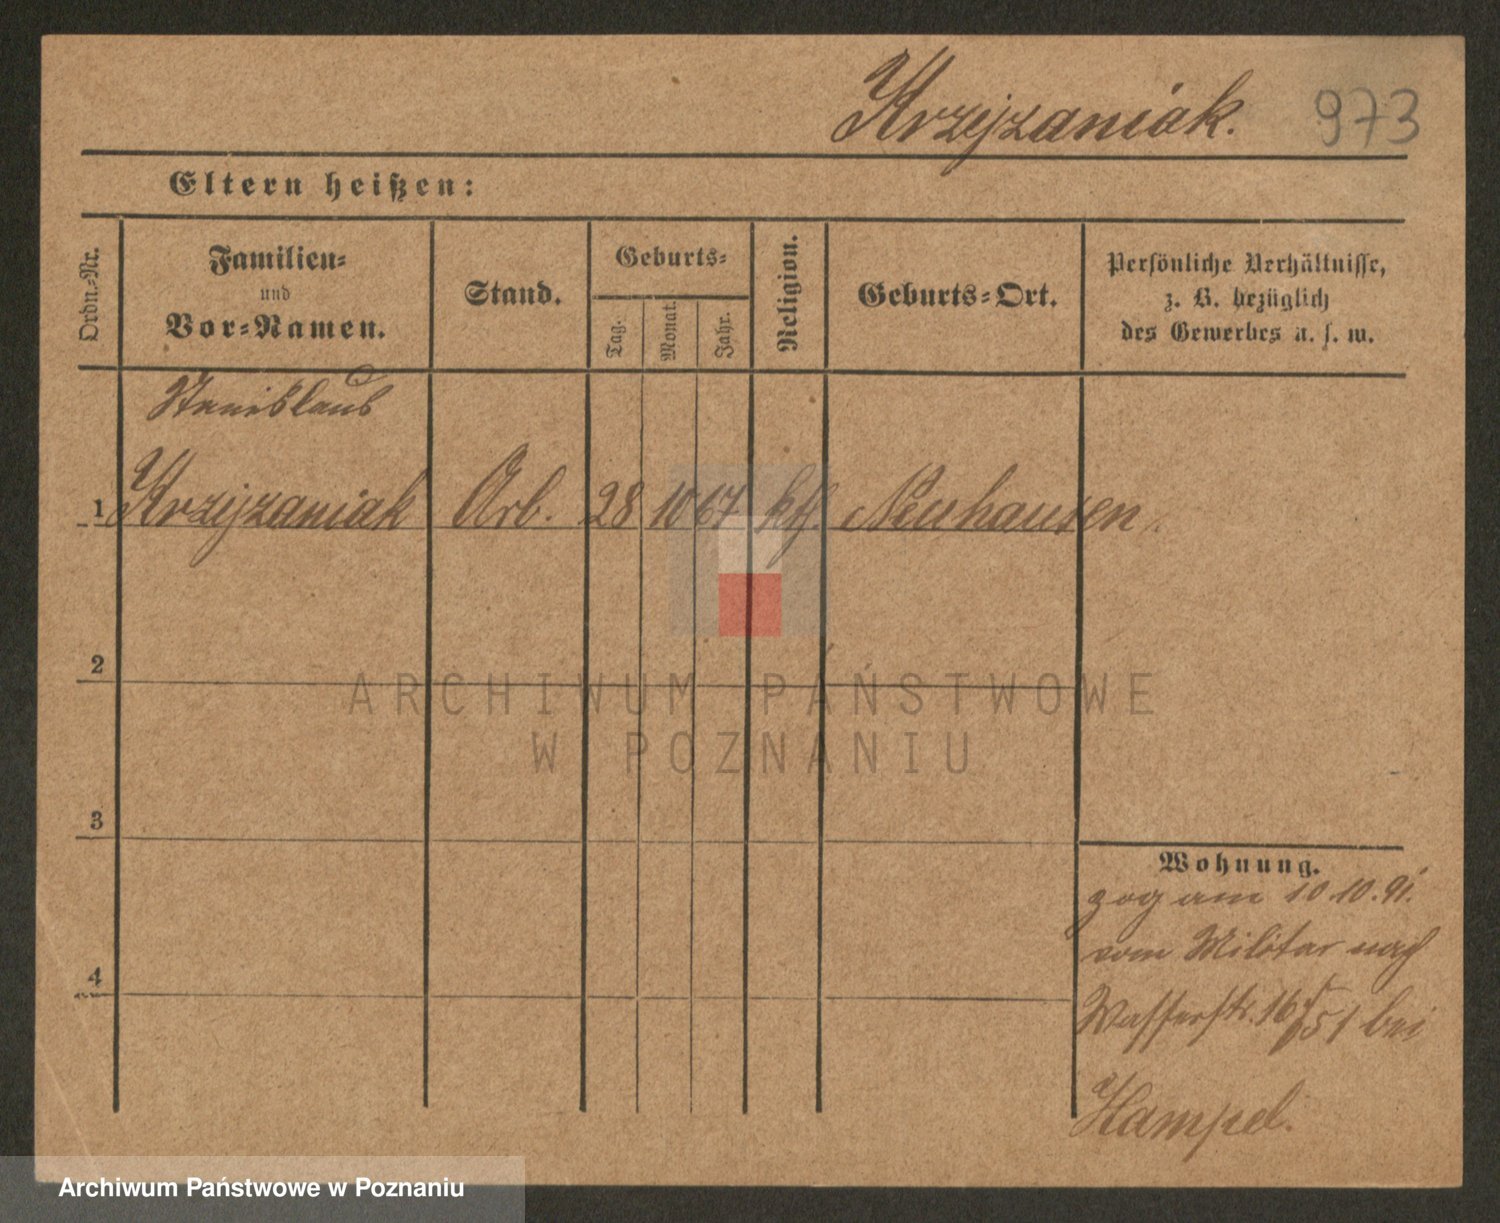 Krzyzaniak. 973
Eltern heißen:
Ordn.-Nr.
Familien-
und
Vor-Namen.
Stand.
Geburts-
Tag.
Monat.
Jahr.
Religion.
Geburts-Ort.
Persönliche Verhältnisse,
z. B. bezüglich
des Gewerbes u. s. w.
Stanislaus
1 Krzyzaniak Arb. 28 10 67 kth. Neuhausen
2
3
4
Wohnung.
zog am 10.10.91.
vom Militär nach
Wasserstr. 16 bei
Hampel.
ARCHIWUM PAŃSTWOWE
W POZNANIU
Archiwum Państwowe w Poznaniu